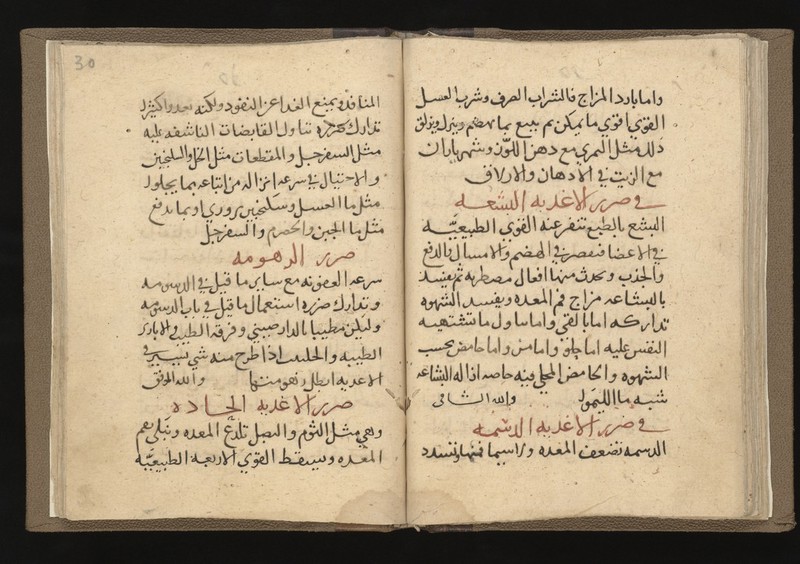 واما بارد المزاج فالشراب الصرف وشرب العسل
القوي اقوي ما يمكن ثم يتبع بما يهضم وينزل ويزلق
ذلك مثل المري مع دهن اللوز وشهرياران
مع الزيت في الادهان والازلاق
في ضرر الاغذيه البشعه
البشع بالطبع تنفر عنه القوي الطبيعيه
في الاعضا فتقصر في الهضم والامساك والدفع
والجذب ويحدث منها افعال مضطربه ثم يفسد
بالبشاعه مزاج فم المعده ويفسد الشهوه
تداركه اما بالقي واما بتناول ما تشتهيه
النفس عليه اما حلو واما مز واما حامض بحسب
الشهوه والحامض المحلي فيه خاصه ازاله البشاعه
شبه ما الليمو والله الشافي
في ضرر الاغذيه الدسمه
الدسمه تضعف المعده ولا سيما فمها وتسدد
30
المنافذ ويمنع الغذا عن النفوذ ولكنه يعدوا كثيرا
تدارك ضرره تناول القابضات الناشفه عليه
مثل السفرجل والمقطعات مثل الخل والسكنجبين
والاحتيال في سرعه انزاله من اتباعه بما يجلوا
مثل ما العسل وسكنجبين بزوري او بما يدفع
مثل ما الجبن والحصرم والسفرجل
ضرر الزهومه
سرعه العفونه مع ساير ما قيل في الدسومه
وتدارك ضرره استعمال ما قيل في باب الدسومه
وليكن مطيبا بالدارصيني وقرفه الطيب والابازير
الطيبه والحلتيت اذا طرح منه شي يسير في
الاغذيه ابطل زهومتها والله الموفق
ضرر الاغذيه الحاده
وهي مثل الثوم والبصل تلدغ المعده وتبلي فم
المعده ويسقط القوي الاربعه الطبيعيه